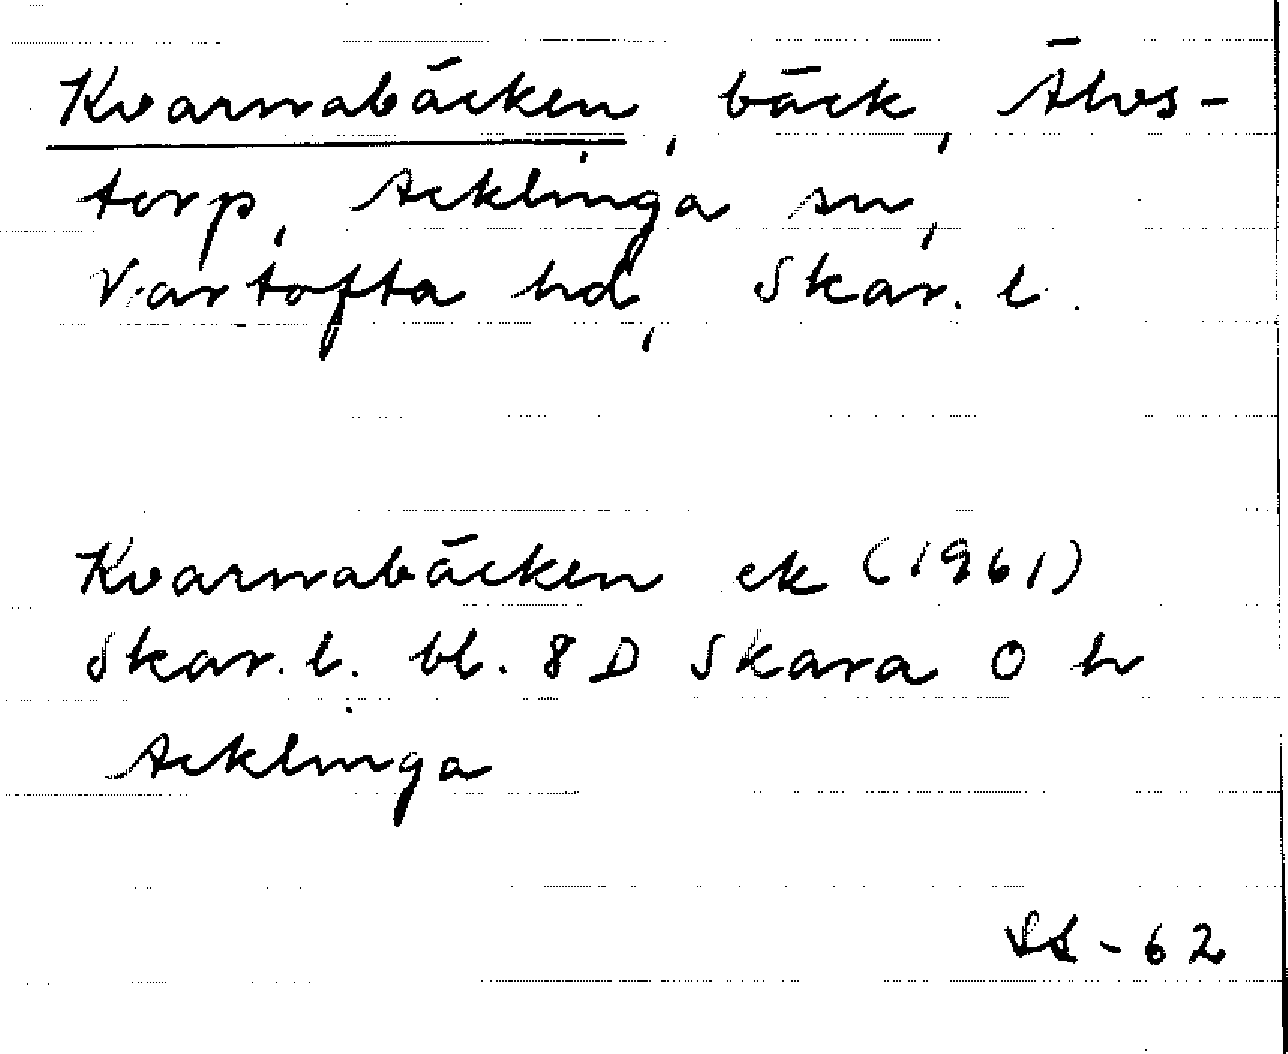 Kvarnabäcken, bäck, Älvs-
torp, Acklinga sn,
Vartofta hd, Skar. l.
Kvarnabäcken ek (1961)
Skar. l. bl. 8 D Skara 0 h
Acklinga
-62